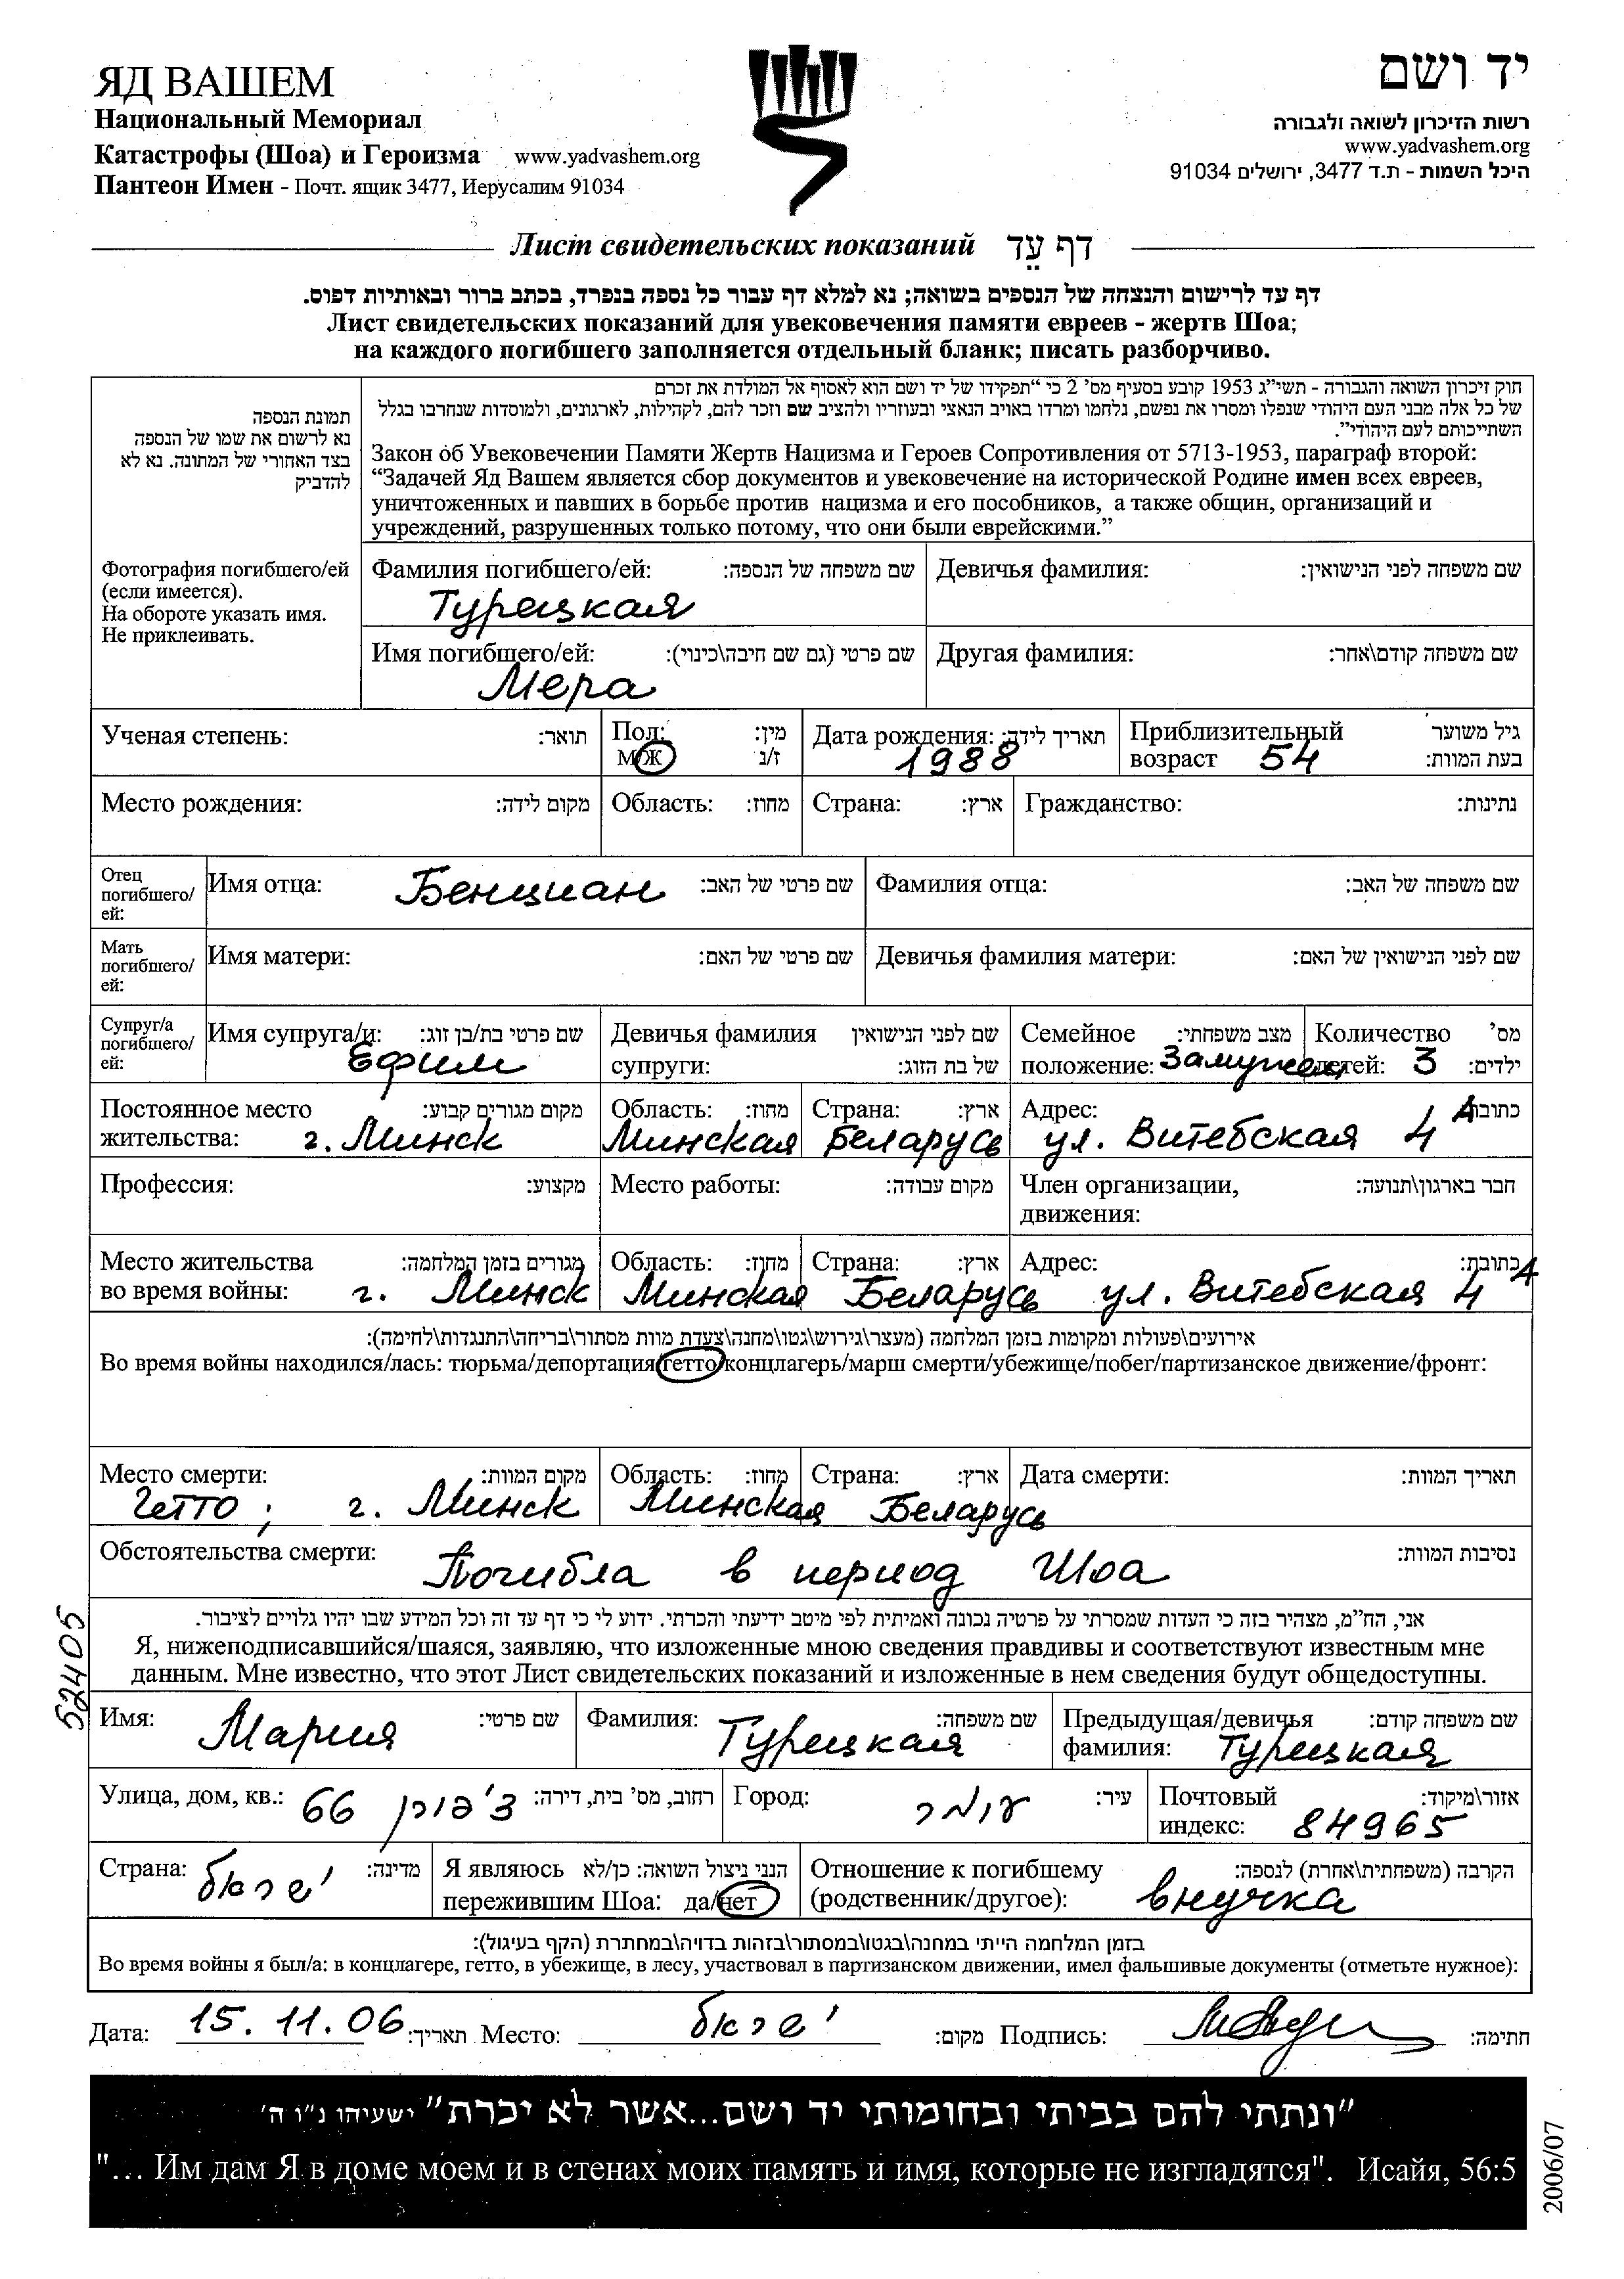 ЯД ВАШЕМ
Национальный Мемориал
Катастрофы (Шоа) и Героизма www.yadvashem.org
Пантеон Имен - Почт. ящик 3477, Иерусалим 91034
יד ושם
רשות הזיכרון לשואה ולגבורה
www.yadvashem.org
היכל השמות - ת.ד 3477, ירושלים 91034
Лист свидетельских показаний דף עֵד
דף עד לרישום והנצחה של הנספים בשואה; נא למלא דף עבור כל נספה בנפרד, בכתב ברור ובאותיות דפוס.
Лист свидетельских показаний для увековечения памяти евреев - жертв Шоа;
на каждого погибшего заполняется отдельный бланк; писать разборчиво.
תמונת הנספה
נא לרשום את שמו של הנספה
בצד האחורי של המתונה. נא לא
להדביק
Фотография погибшего/ей
(если имеется).
На обороте указать имя.
Не приклеивать.
חוק זיכרון השואה והגבורה - תשי"ג 1953 קובע בסעיף מס' 2 כי "תפקידו של יד ושם הוא לאסוף אל המולדת את זכרם
של כל אלה מבני העם היהודי שנפלו ומסרו את נפשם, נלחמו ומרדו באויב הנאצי ובעוזריו ולהציב שם וזכר להם, לקהילות, לארגונים, ולמוסדות שנחרבו בגלל
השתייכותם לעם היהודי".
Закон об Увековечении Памяти Жертв Нацизма и Героев Сопротивления от 5713-1953, параграф второй:
"Задачей Яд Вашем является сбор документов и увековечение на исторической Родине имен всех евреев,
уничтоженных и павших в борьбе против нацизма и его пособников, а также общин, организаций и
учреждений, разрушенных только потому, что они были еврейскими."
Фамилия погибшего/ей: שם משפחה של הנספה: Девичья фамилия: שם משפחה לפני הנישואין:
Турецкая
Имя погибшего/ей: שם פרטי (גם שם חיבה\כינוי): Другая фамилия: שם משפחה קודם\אחר:
Мера
Ученая степень: תואר: Пол: מין: Дата рождения: תאריך לידה: Приблизительный גיל משוער
М/Ж ז/נ 1988 возраст 54 בעת המוות:
Место рождения: מקום לידה: Область: מחוז: Страна: ארץ: Гражданство: נתינות:
Отец
погибшего/
ей:
Имя отца: Бенциан שם פרטי של האב: Фамилия отца: שם משפחה של האב:
Мать
погибшего/
ей:
Имя матери: שם פרטי של האם: Девичья фамилия матери: שם לפני הנישואין של האם:
Супруг/а
погибшего/
ей:
Имя супруга/и: שם פרטי בת/בן זוג: Девичья фамилия שם לפני הנישואין Семейное מצב משפחתי: Количество מס'
Ефим супруги: של בת הזוג: положение: Замужем детей: 3 ילדים:
Постоянное место מקום מגורים קבוע: Область: מחוז: Страна: ארץ: Адрес: כתובת:
жительства: г. Минск Минская Беларусь ул. Витебская 4 А
Профессия: מקצוע: Место работы: מקום עבודה: Член организации, חבר בארגון\תנועה:
движения:
Место жительства מגורים בזמן המלחמה: Область: מחוז: Страна: ארץ: Адрес: כתובת:
во время войны: г. Минск Минская Беларусь ул. Витебская 4 А
אירועים\פעולות ומקומות בזמן המלחמה (מעצר\גירוש\גטו\מחנה\צעדת מוות מסתור\בריחה\התנגדות\לחימה):
Во время войны находился/лась: тюрьма/депортация/гетто/концлагерь/марш смерти/убежище/побег/партизанское движение/фронт:
Место смерти: מקום המוות: Область: מחוז: Страна: ארץ: Дата смерти: תאריך המוות:
Гетто; г. Минск Минская Беларусь
Обстоятельства смерти: Погибла в период Шоа נסיבות המוות:
אני, הח"מ, מצהיר בזה כי העדות שמסרתי על פרטיה נכונה ואמיתית לפי מיטב ידיעתי והכרתי. ידוע לי כי דף עד זה וכל המידע שבו יהיו גלויים לציבור.
Я, нижеподписавшийся/шаяся, заявляю, что изложенные мною сведения правдивы и соответствуют известным мне
данным. Мне известно, что этот Лист свидетельских показаний и изложенные в нем сведения будут общедоступны.
52405
Имя: Мария שם פרטי: Фамилия: Турецкая שם משפחה: Предыдущая/девичья שם משפחה קודם:
фамилия: Турецкая
Улица, дом, кв.: 66 רחוב, מס' בית, דירה: Город: עומר עיר: Почтовый אזור\מיקוד:
индекс: 84965
Страна: ישראל מדינה: Я являюсь הנני ניצול השואה: כן/לא Отношение к погибшему הקרבה (משפחתית\אחרת) לנספה:
пережившим Шоа: да/нет (родственник/другое): внучка
בזמן המלחמה הייתי במחנה\בגטו\במסתור\בזהות בדויה\במחתרת (הקף בעיגול):
Во время войны я был/а: в концлагере, гетто, в убежище, в лесу, участвовал в партизанском движении, имел фальшивые документы (отметьте нужное):
Дата: 15.11.06 תאריך: Место: ישראל מקום: Подпись: חתימה:
"ונתתי להם בביתי ובחומותי יד ושם...אשר לא יכרת" ישעיהו נ"ו ה'
"... Им дам Я в доме моем и в стенах моих память и имя, которые не изгладятся". Исайя, 56:5
2006/07